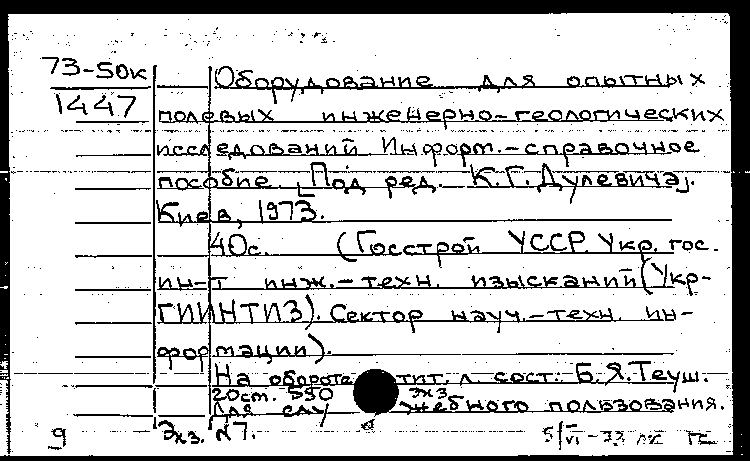 73-50к
1447
Оборудование для опытных
полевых инженерно-геологических
исследований Информ.-справочное
пособие. [Под ред. К.Г.Дулевича].
Киев, 1973.
40с. (Госстрой УССР. Укр. гос.
ин-т инж.-техн. изысканий (Укр-
ГИИНТИЗ). Сектор науч.-техн. ин-
формации).
На обороте тит. л. сост.: Б.Я.Теуш.
20см. 550 экз
Для слу жебного пользования.
9 Экз. №7.
5/VI-73